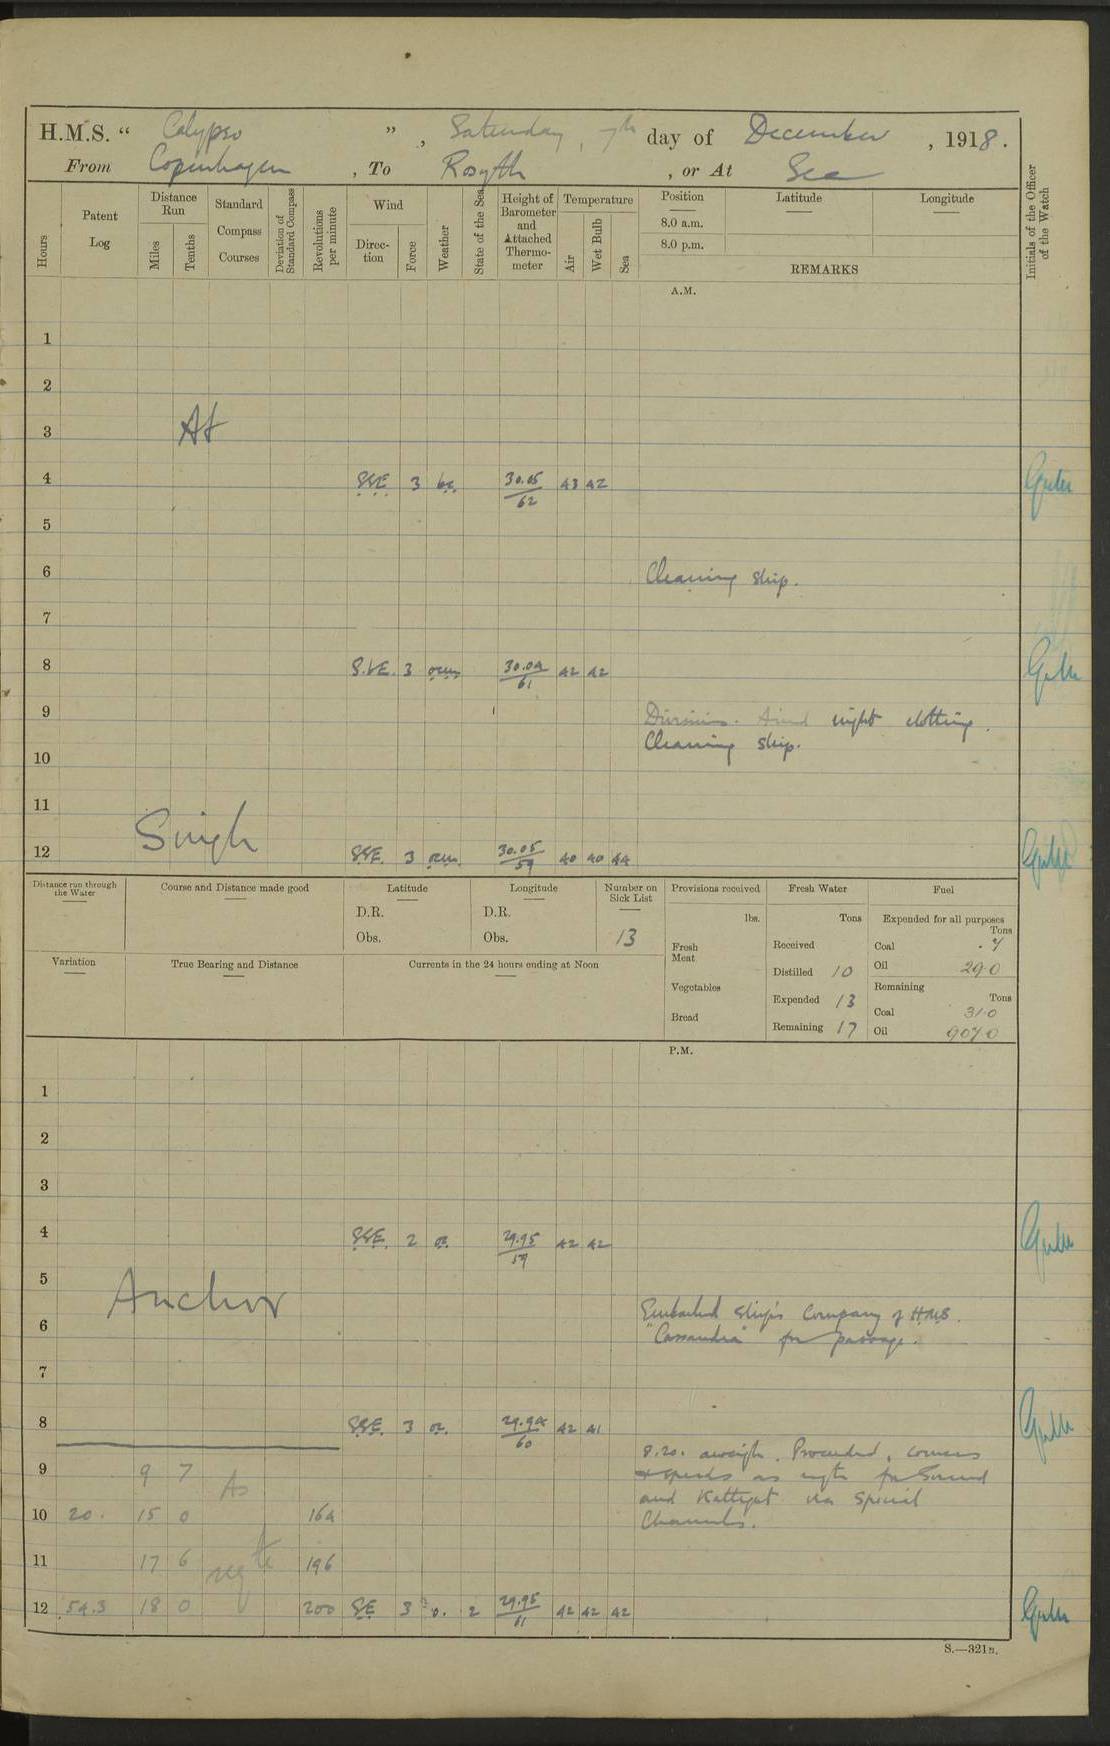 H.M.S. " Calypso ", Saturday, 7th day of December, 1918.
From Copenhagen, To Rosyth, or At Sea
Hours
Patent Log
Distance Run
Miles
Tenths
Standard Compass Courses
Deviation of Standard Compass
Revolutions per minute
Wind
Direction
Force
Weather
State of the Sea
Height of Barometer and Attached Thermometer
Temperature
Air
Wet Bulb
Sea
Position
Latitude
Longitude
8.0 a.m.
8.0 p.m.
REMARKS
Initials of the Officer of the Watch
A.M.
1
2
3 At
4 SSE 3 bc. 30.05/62 43 42
5
6 Cleaning ship.
7
8 S.bE. 3 30.04/61 42 42
9 Divisions. night clothing.
Cleaning ship.
10
11 Single
12 SSE. 3 30.05/59 40 40 44
Distance run through the Water
Course and Distance made good
Latitude
Longitude
Number on Sick List
Provisions received
Fresh Water
Fuel
D.R.
D.R.
13
lbs.
Tons
Expended for all purposes
Tons
Obs.
Obs.
Fresh Meat
Received
Coal .7
Distilled 10
Oil 29.0
Variation
True Bearing and Distance
Currents in the 24 hours ending at Noon
Vegetables
Expended 13
Remaining
Tons
Coal 31.0
Bread
Remaining 17
Oil 907.0
P.M.
1
2
3
4 SSE. 2 29.95/59 42 42
5 Anchor
Embarked Ship's Company of HMS.
6 "Cassandra" for passage.
7
8 SSE. 3 29.94/60 42 41
8.20. aweigh. Proceeded, courses
9 9 7 As & speeds as reqte for Sound
and Kattegat via Special
10 20. 15 0 164 Channels.
11 17 6 reqte 196
12 54.3 18 0 200 SE 3 o. 2 29.95/61 42 42 42
S.—321B.